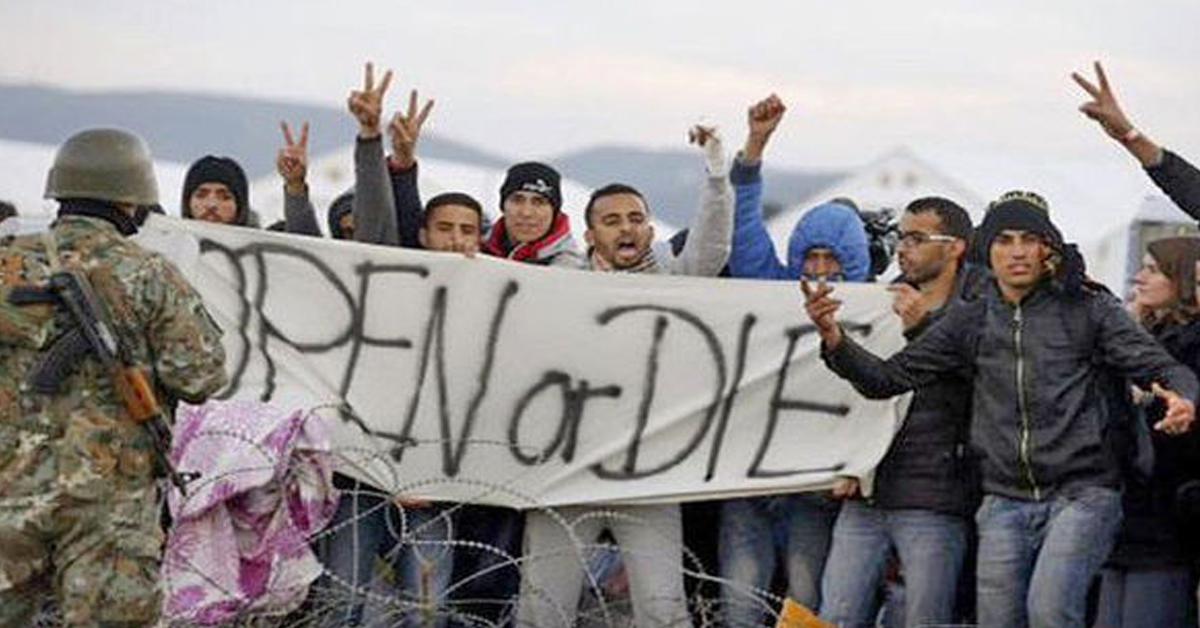 OPEN or DIE